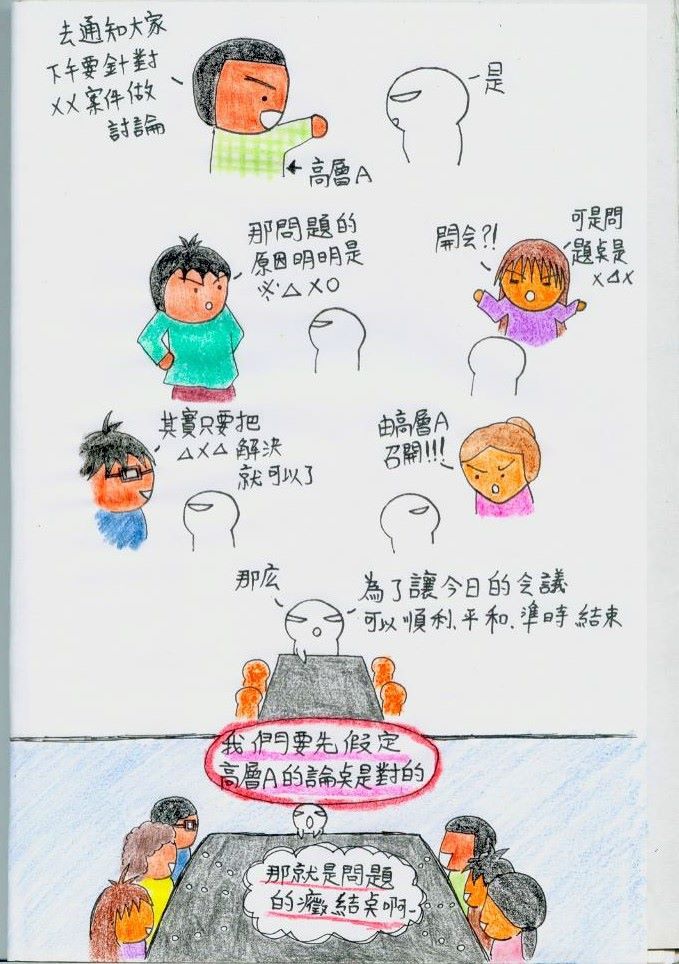 去通知大家
下午要針對
XX案件做
討論
是
高層A
那問題的
原因明明是
※△X○
開会?!
可是問
題桌是
X△X
其實只要把
△X△解決
就可以了
由高層A
召開!!!
那庅
為了讓今日的会議
可以順利、平和、準時結束
我們要先假定
高層A的論桌是對的
那就是問題
的癥結桌啊~